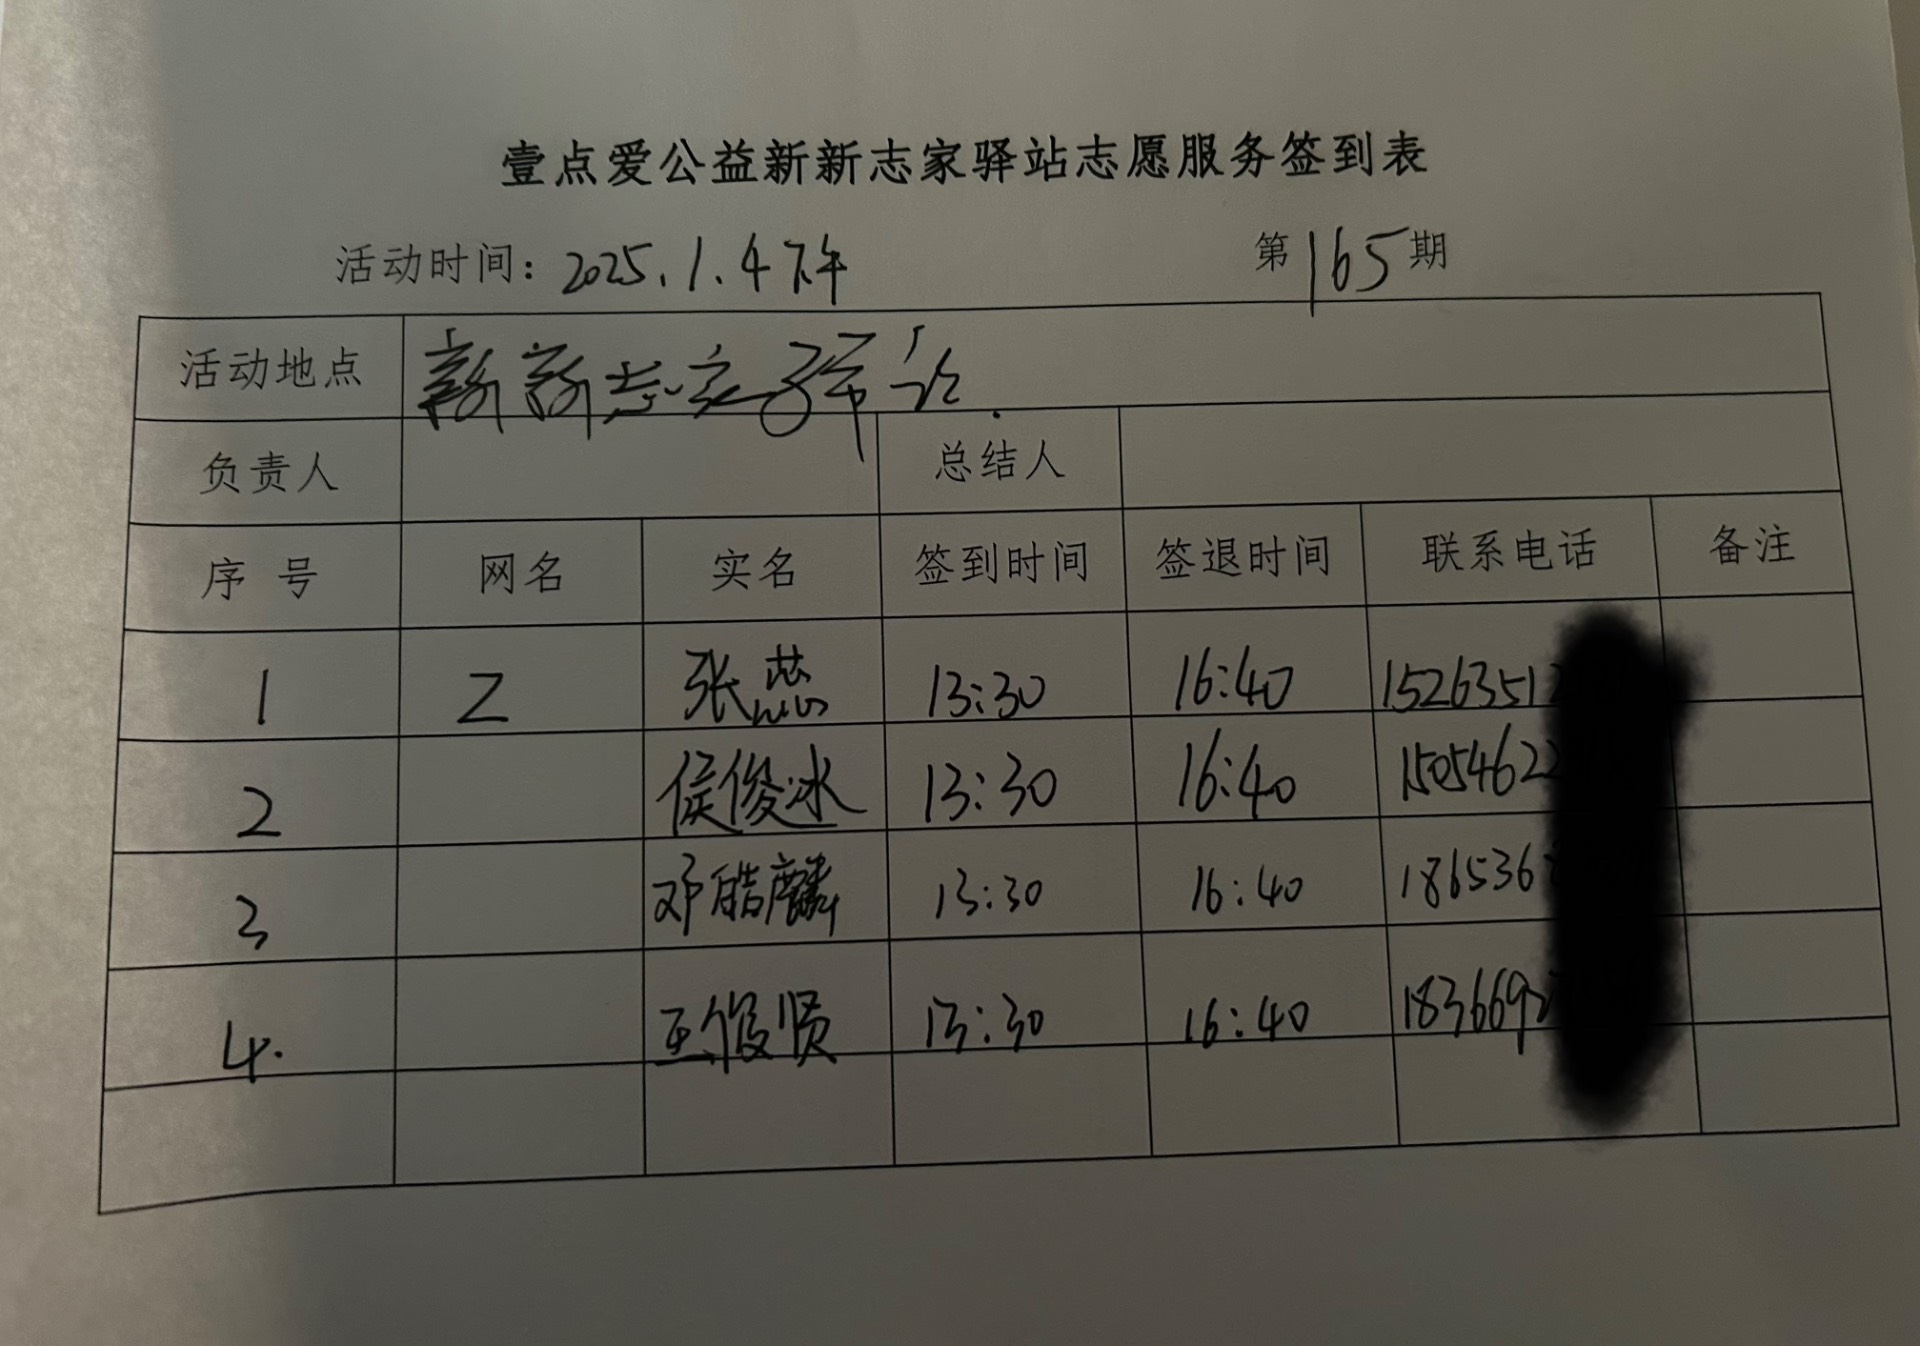 壹点爱公益新新志家驿站志愿服务签到表
活动时间：2025.1.4下午 第165期
活动地点 新新志家驿站.
负责人 总结人
序号 网名 实名 签到时间 签退时间 联系电话 备注
1 Z 张蕊 13:30 16:40 1526351
2 侯俊冰 13:30 16:40 15054622
3 邓皓麟 13:30 16:40 186536
4. 王俊贤 13:30 16:40 1836692